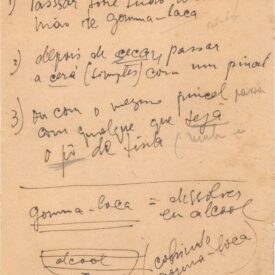 1) passar sobre tudo
mão de gomma-laca
2) depois de cecar, passar
a cerá (simples) com um pincel
3) ou com o mesmo pincel passa
com qualque que sejá
o pó da tinta
gomma-laca = dissolver
em alcool
alcool
gomma-laca